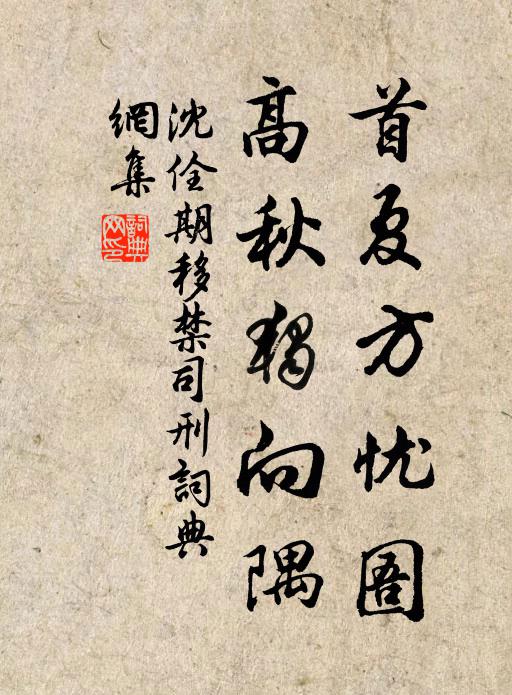 首夏方忧圄
高秋独向隅
沈佺期移禁司刑詞典
網集
詞典網印